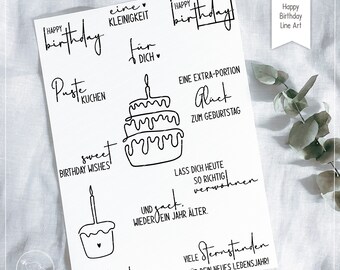 HAPPY
birthday
eine
KLEINIGKEIT
HAPPY
birthday
Happy
Birthday
Line Art
für
DICH
Puste
KUCHEN
EINE EXTRA-PORTION
Glück
ZUM GEBURTSTAG
sweet
BIRTHDAY WISHES
LASS DICH HEUTE
SO RICHTIG
verwöhnen
UND zack,
WIEDER EIN JAHR ÄLTER.
VIELE Sternstunden
NEUES LEBENSJAHR!